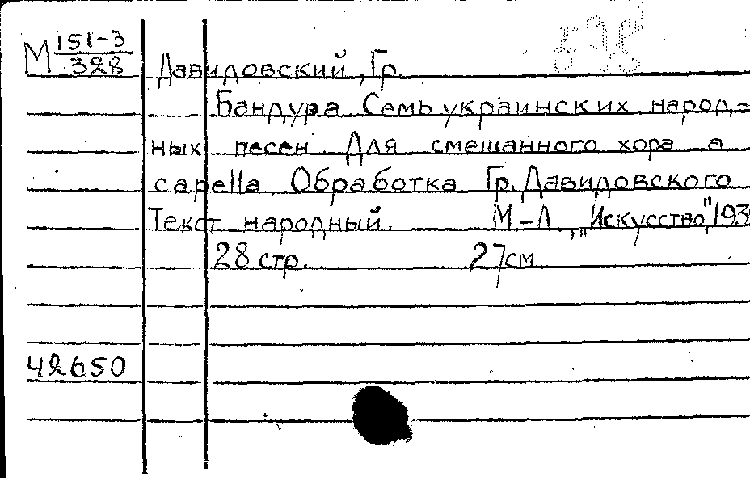 М 151-3
328
Давидовский, Гр.
Бандура Семь украинских народ-
ных песен Для смешанного хора а
capella Обработка Гр. Давидовского
Текст народный. М-Л, "Искусство", 193
28 стр. 27см
42650